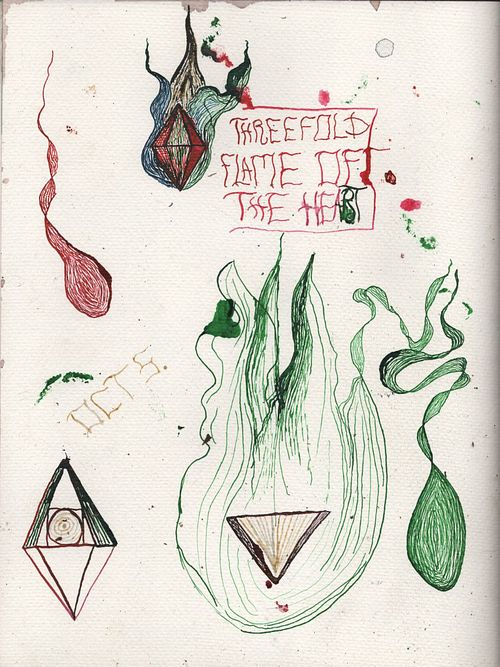 THREEFOLD
FLAME OF
THE HEART
OCT 5.